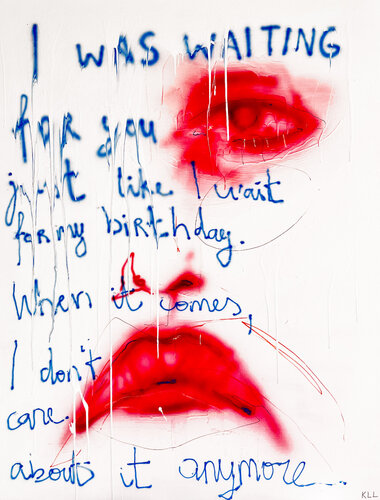 I WAS WAITING
for you
just like I wait
for my birthday.
When it comes,
I don't
care.
about it anymore...
KLL